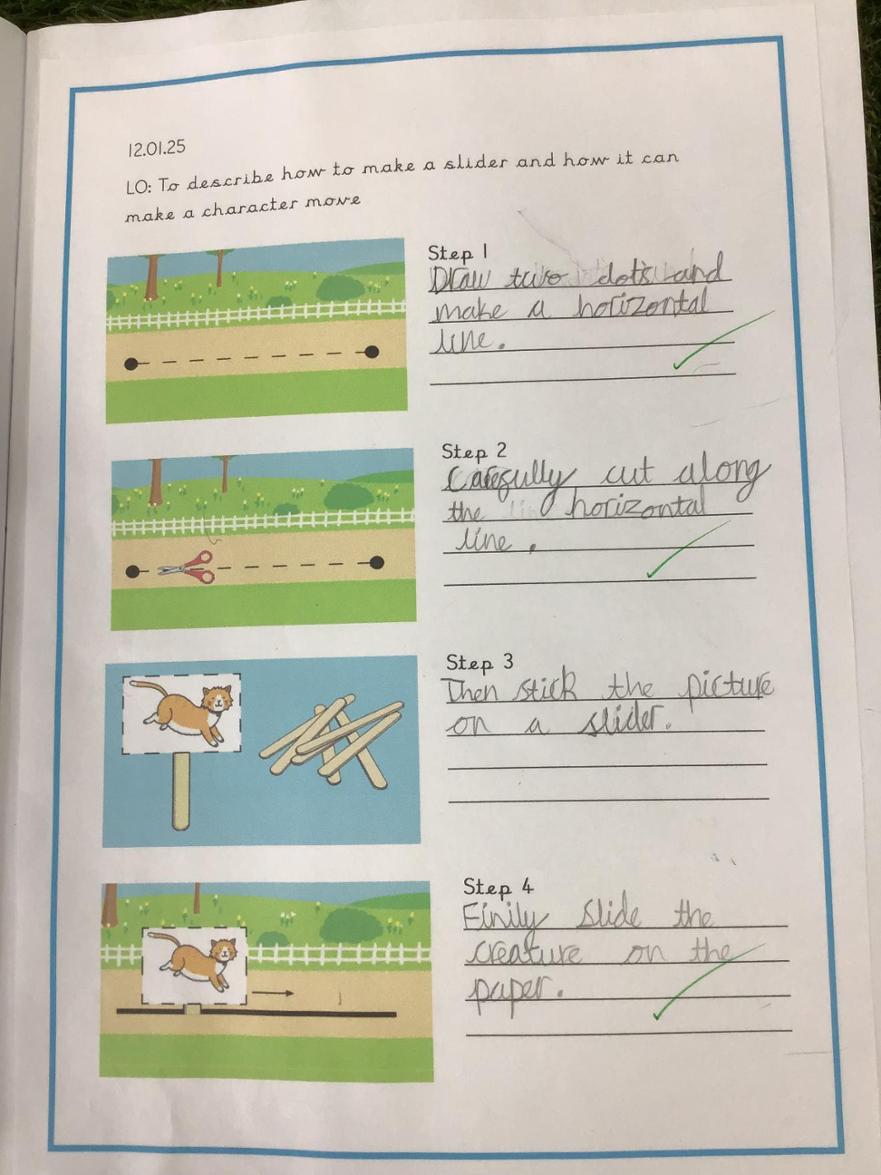 12.01.25
LO: To describe how to make a slider and how it can
make a character move
Step 1
Draw two dots and
make a horizontal
line.
Step 2
Carefully cut along
the horizontal
line.
Step 3
Then stick the picture
on a slider.
Step 4
Finily slide the
creature on the
paper.